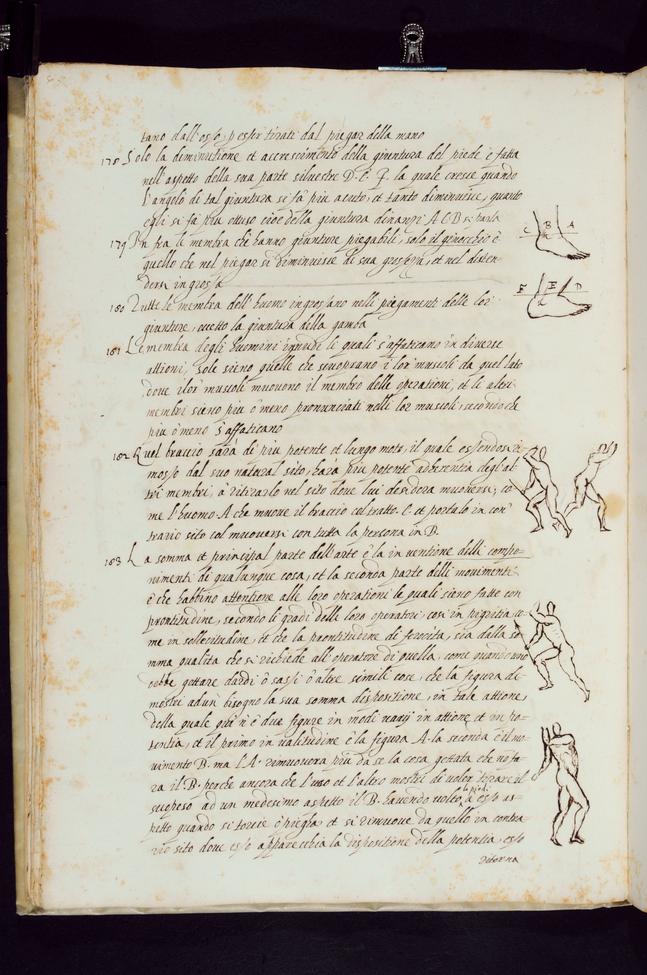 tano dall'osso p esser tirati dal piegar della mano
178 Solo la diminutione et accrescimento della giuntura del piede è fatta
nell'aspetto della sua parte silvestre D. E. F. la quale cresce quando
l'angolo di tal giuntura si fà più acuto, et tanto diminuisce, quanto
egli si fa più ottuso cioè della giuntura dinanzi A C B si parla
C B A
179 In fra le membra che hanno giunture piegabili, solo il ginocchio è
quello che nel piegar si diminuisce di sua grossezza, et nel disten-
dersi ingrossa
F E D
180 Tutte le membra dell'huomo ingrossano nelli piegamenti delle lor
giunture, eccetto la giuntura della gamba
181 Le membra degli huomini ignudi le quali s'affaticano in diverse
attioni, sole sieno quelle che scuoprano i lor' muscoli da quel lato
dove i lor' muscoli muovono il membro delle operationi, et le altri
membri sieno più ò meno pronunciati nelli lor muscoli, secondo che
più ò meno s'affaticano
182 Quel braccio sarà di più potente et lungo moto, il quale essendosi
mosso dal suo natural sito, harà più potente aderentia degl'al
tri membri, à ritirarlo nel sito dove lui desidera muoversi, co
me l'huomo A che muove il braccio col tratto. C. et portalo in con
trario sito col muoversi con tutta la persona in B.
183 La somma et principal parte dell'arte è la inventione delli compo-
nimenti di qualunque cosa, et la seconda parte delli movimenti
è che habbino attentione alle loro operationi le quali sieno fatte con
prontitudine, secondo li gradi delle loro operatori, così in pigritia co
me in sollecitudine, et che la prontitudine di ferocità, sia dalla so
mma qualità che si richiede all'operatore di quella, come quando uno
debbe gettare dardi ò sassi ò altre simili cose, che la figura di-
mostri ad un' bisogno la sua somma dispositione, in tale attione,
della quale qui n'è due figure in modi varij in attione, et in po-
tentia, et il primo in valitudine è la figura A. la seconda è il mo-
vimento B. ma l'A. rimuoverà più da se la cosa gettata che nò fa-
rà il B. perche ancora che l'uno et l'altro mostri di voler tirare il
suo peso ad un medesimo aspetto il B. havendo volto li piedi à esso as-
petto quando si torcie ò piegha et si rimuove da quello in contra-
rio sito dove esso apparecchia la dispositione della potentia, esso
ritorna